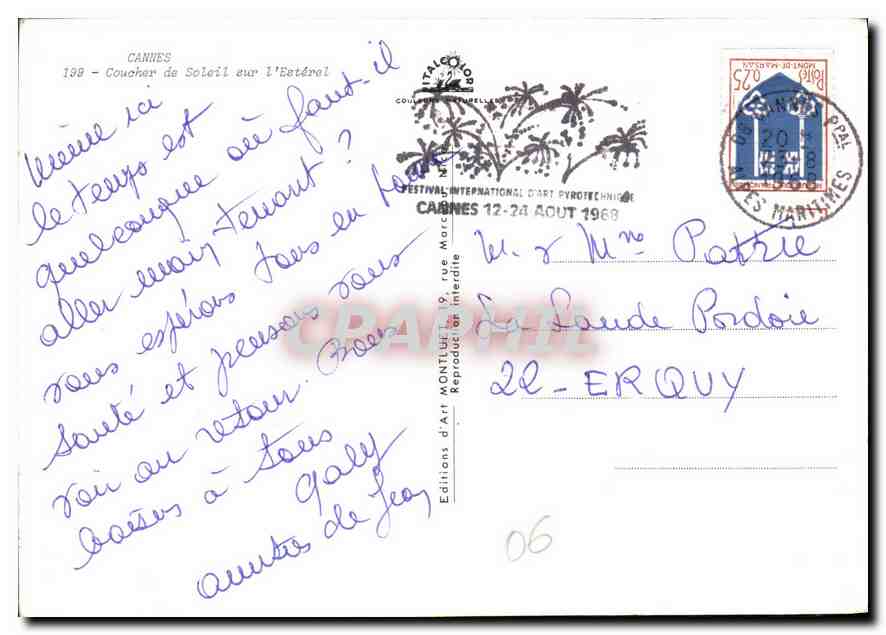 CANNES
199 - Coucher de Soleil sur l'Estérel
même ici
le temps est
quelconque où faut-il
aller maintenant ?
vous espérons tous en bonne
santé et pensons vous
voir au retour. Bons
baisers à tous
Gaby
amitiés de Jean
ITALCOLOR
COULEURS NATURELLES
FESTIVAL INTERNATIONAL D'ART PYROTECHNIQUE
CANNES 12-24 AOUT 1968
Editions d'Art MONTLUET, 19, rue
Reproduction interdite
0,25
POSTES
MONT-DE-MARSAN
06 CANNES PPAL
20 H
1968
ALPES MARITIMES
M. & Mme Patrie
La Lande Pordoie
22 - ERQUY
06
CPAPHIL